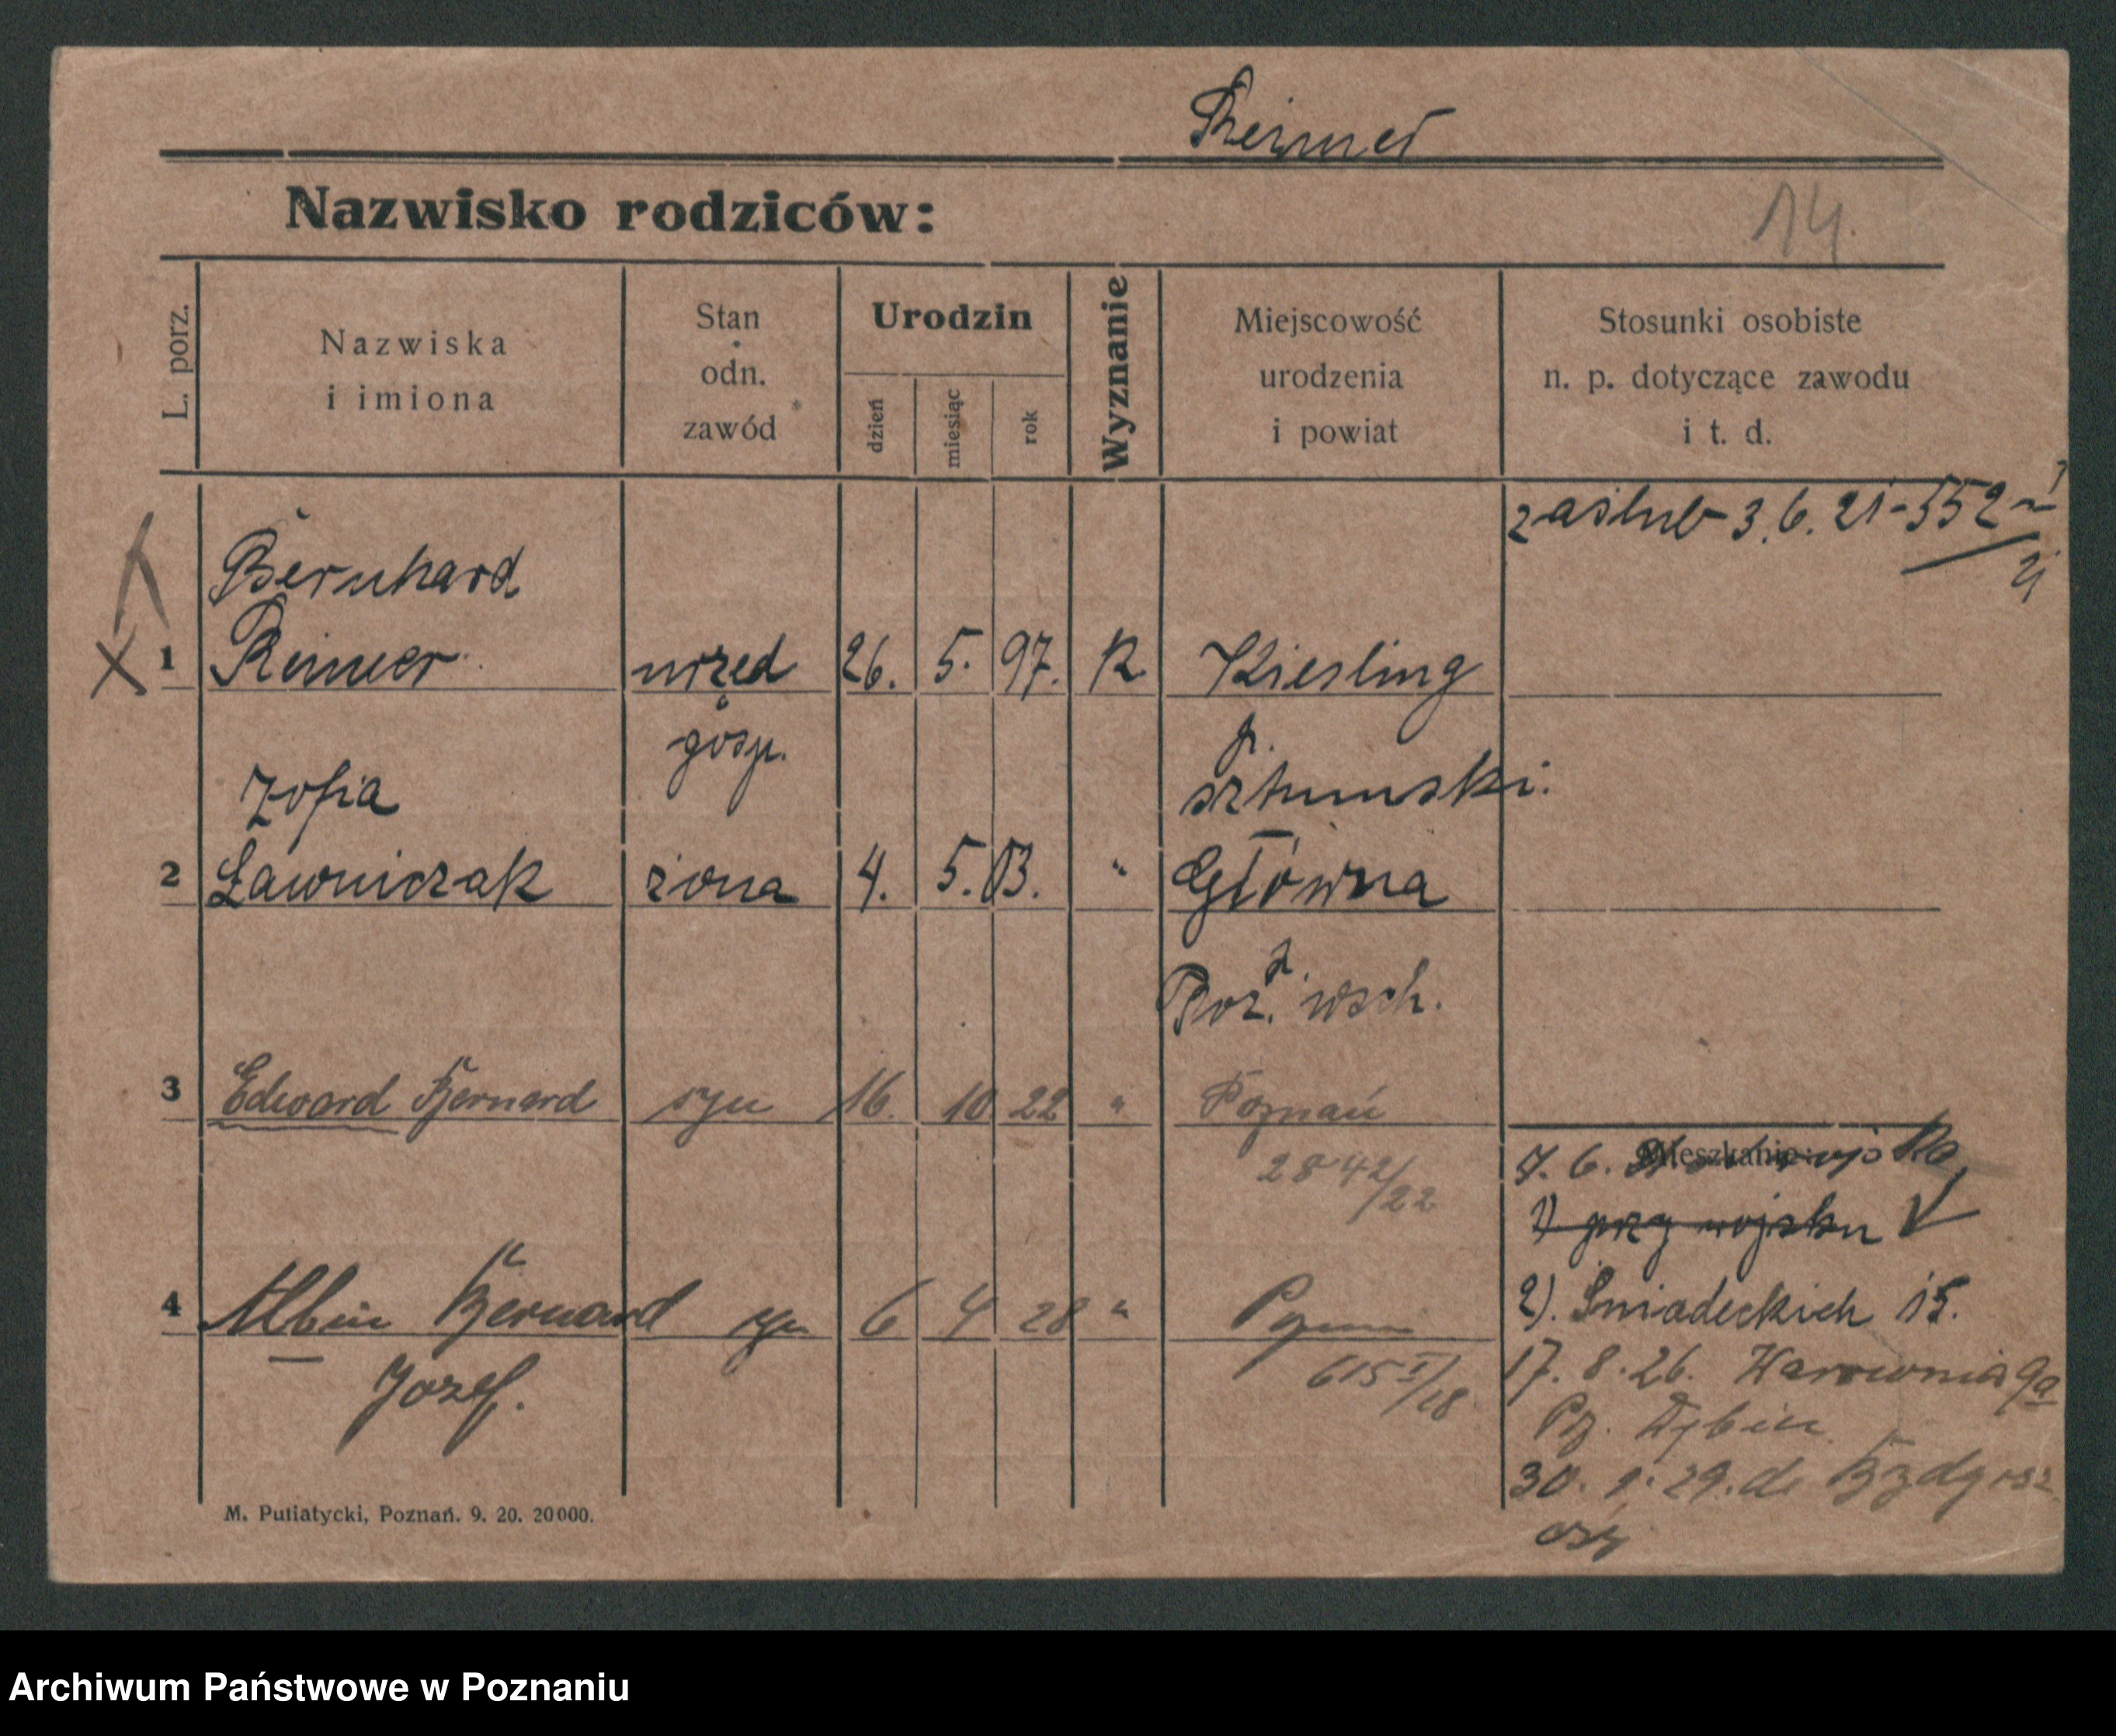 Reimer
Nazwisko rodziców:
14.
L. porz.
Nazwiska
i imiona
Stan
odn.
zawód
Urodzin
dzień
miesiąc
rok
Wyznanie
Miejscowość
urodzenia
i powiat
Stosunki osobiste
n. p. dotyczące zawodu
i t. d.
zaślub 3.6.21 - 552
21
Bernhard
1 Reimer urzęd 26. 5. 97. R. Kiesling
gosp. p.
Zofia sztumski.
2 Ławniczak żona 4. 5. 03. " Główna
p.
Poz. wsch.
3 Edward Bernard syn 16. 10 22 " Poznań
2842/22
Mieszkanie:
7. 6.
1) przy wojsku
4 Albin Bernard syn 6 4 28 "
Józef.
615 I/28
2). Śniadeckich 15.
17. 8. 26. Warownia 9a
Pz. Dębin
30. 9. 29. do Bydgosz
czy
M. Putiatycki, Poznań. 9. 20. 20000.
Archiwum Państwowe w Poznaniu